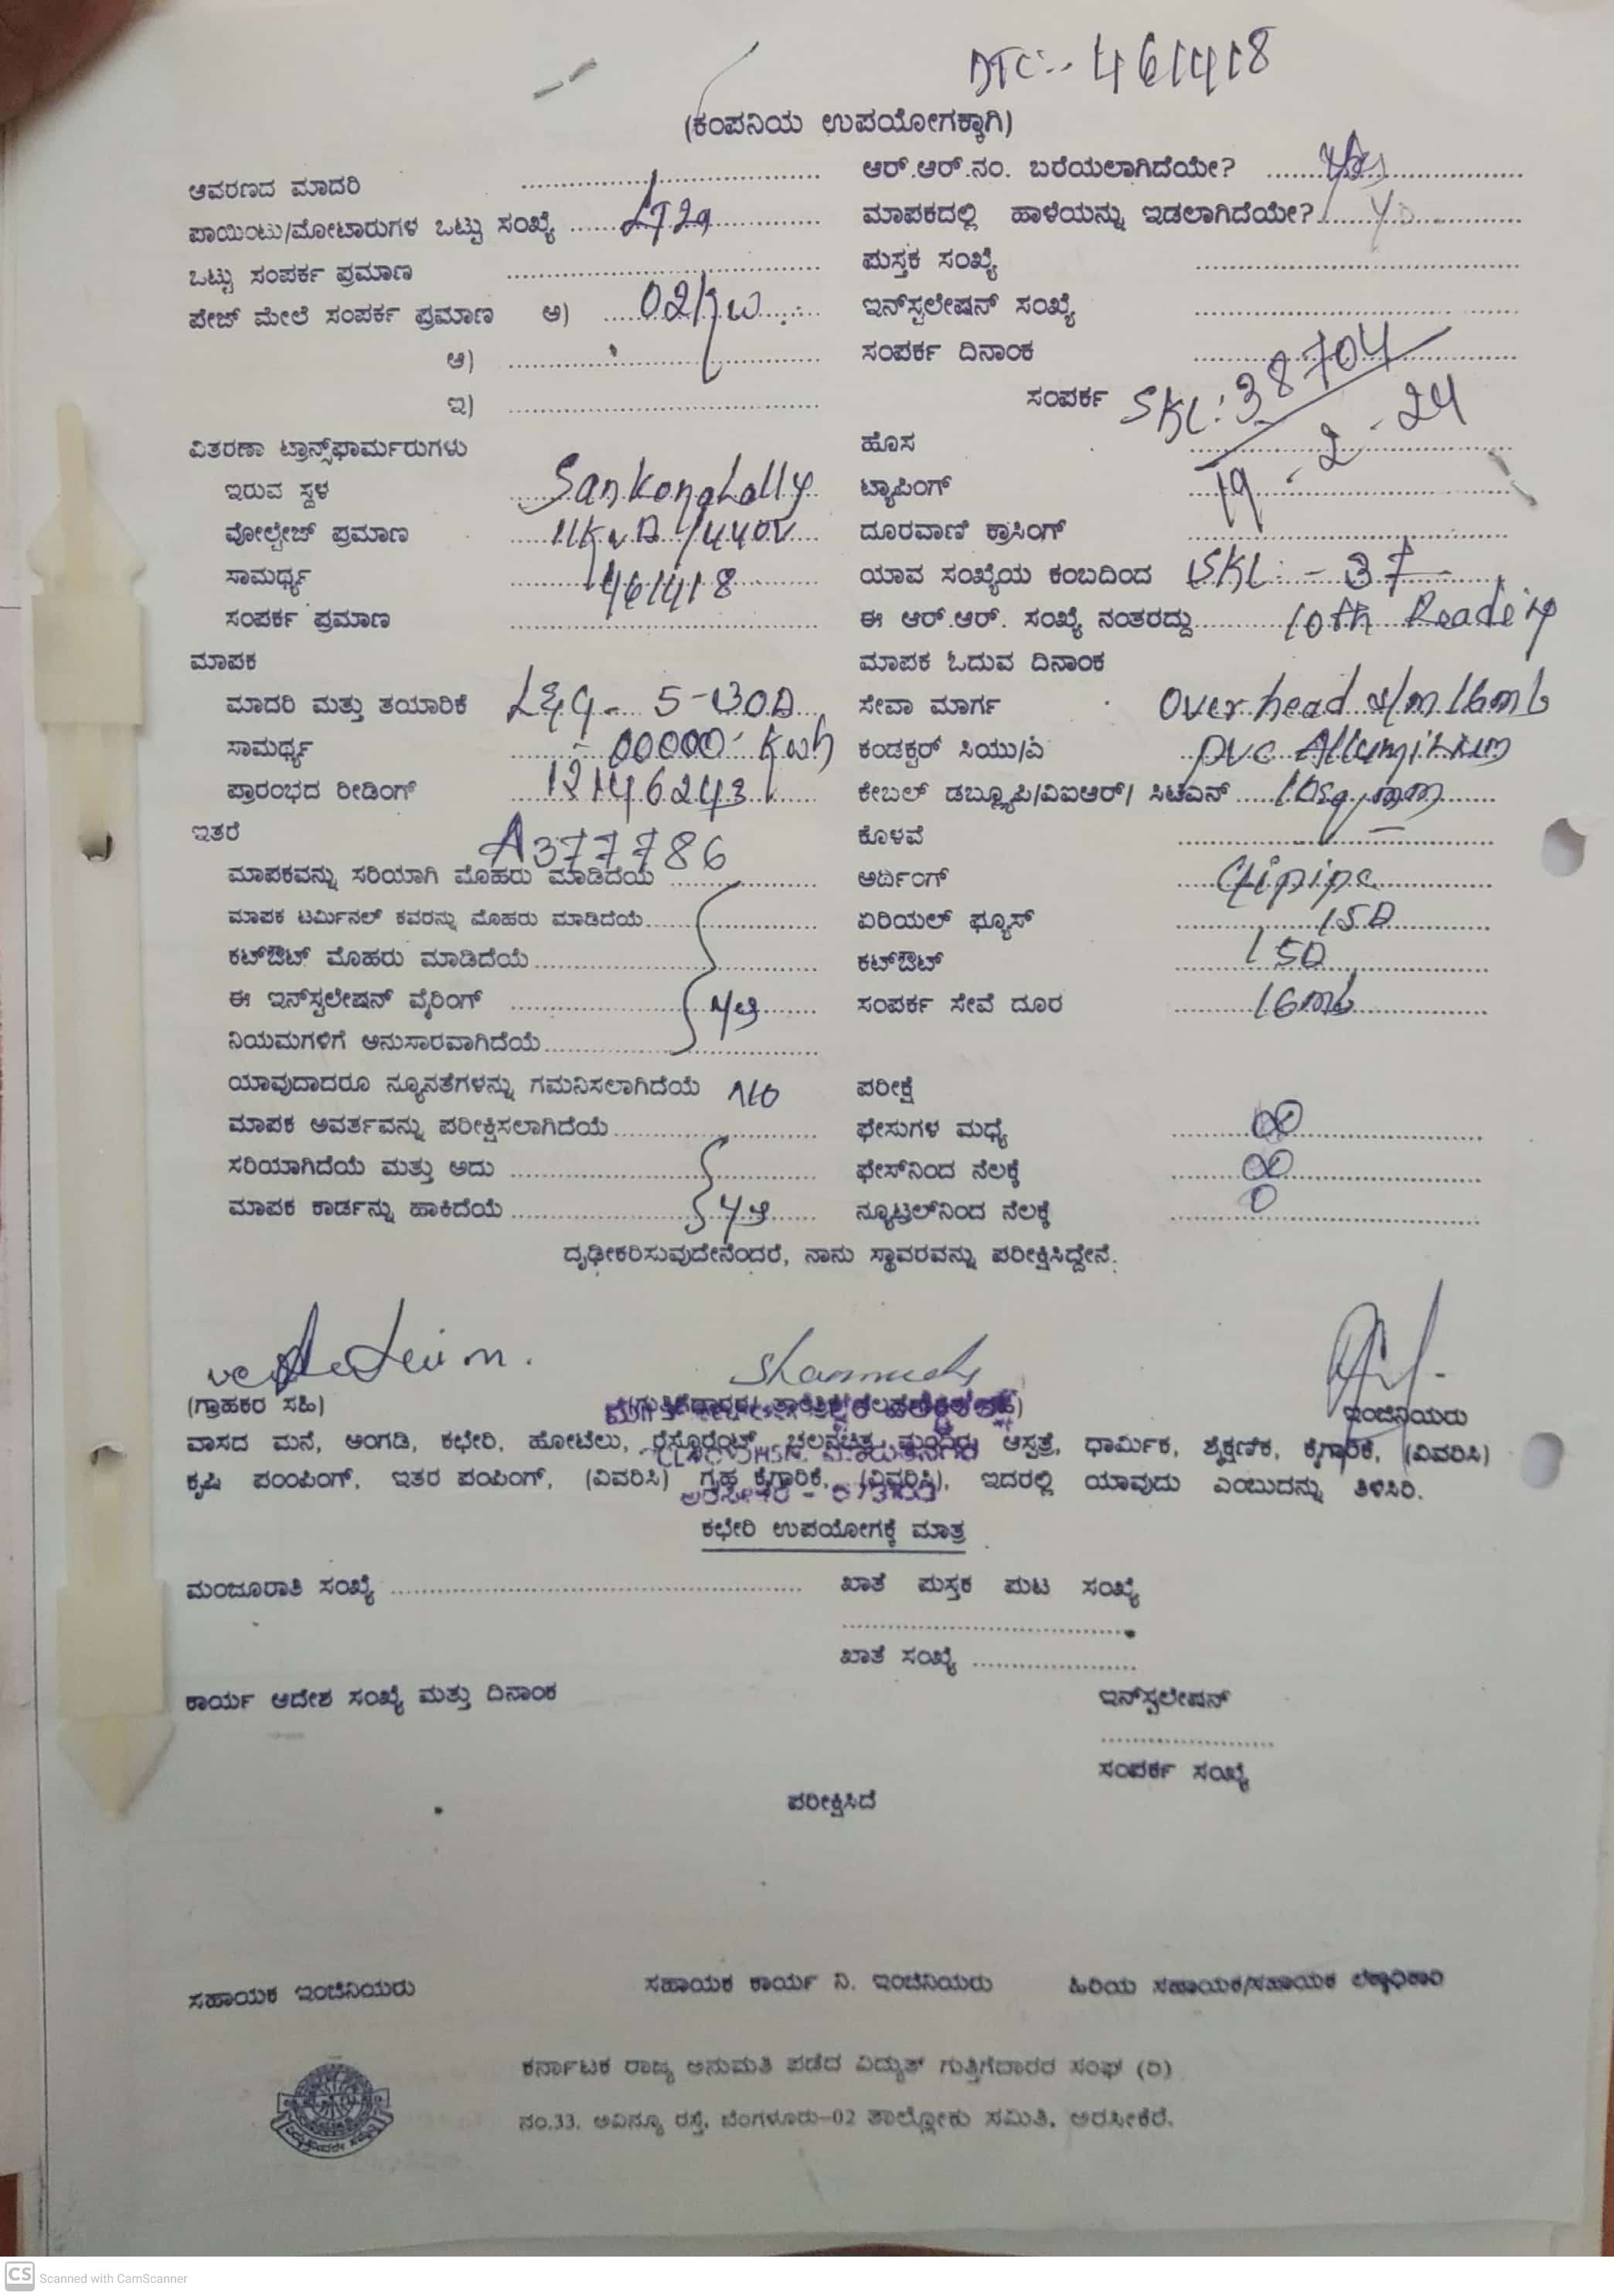 DTC:- 461418
(ಕಂಪನಿಯ ಉಪಯೋಗಕ್ಕಾಗಿ)
ಆವರಣದ ಮಾದರಿ ....................
ಪಾಯಿಂಟು/ಮೋಟಾರುಗಳ ಒಟ್ಟು ಸಂಖ್ಯೆ LT2a
ಒಟ್ಟು ಸಂಪರ್ಕ ಪ್ರಮಾಣ ....................
ಪೇಜ್ ಮೇಲೆ ಸಂಪರ್ಕ ಪ್ರಮಾಣ ಅ) 02kw
ಆ) ....................
ಇ) ....................
ವಿತರಣಾ ಟ್ರಾನ್ಸ್‌ಫಾರ್ಮರುಗಳು
ಇರುವ ಸ್ಥಳ Sankonahally
ವೋಲ್ಟೇಜ್ ಪ್ರಮಾಣ 11KvA/440V
ಸಾಮರ್ಥ್ಯ 461418
ಸಂಪರ್ಕ ಪ್ರಮಾಣ ....................
ಮಾಪಕ
ಮಾದರಿ ಮತ್ತು ತಯಾರಿಕೆ L&G- 5-30A
ಸಾಮರ್ಥ್ಯ - 00000 kwh
ಪ್ರಾರಂಭದ ರೀಡಿಂಗ್ 12146243
ಇತರೆ A377786
ಮಾಪಕವನ್ನು ಸರಿಯಾಗಿ ಮೊಹರು ಮಾಡಿದೆಯೆ ..........
ಮಾಪಕ ಟರ್ಮಿನಲ್ ಕವರನ್ನು ಮೊಹರು ಮಾಡಿದೆಯೆ..........
ಕಟ್‌ಔಟ್ ಮೊಹರು ಮಾಡಿದೆಯೆ..........
ಈ ಇನ್‌ಸ್ಟಲೇಷನ್ ವೈರಿಂಗ್ ..........
ನಿಯಮಗಳಿಗೆ ಅನುಸಾರವಾಗಿದೆಯೆ..........
ಯಾವುದಾದರೂ ನ್ಯೂನತೆಗಳನ್ನು ಗಮನಿಸಲಾಗಿದೆಯೆ NO
ಮಾಪಕ ಅವರ್ತವನ್ನು ಪರೀಕ್ಷಿಸಲಾಗಿದೆಯೆ..........
ಸರಿಯಾಗಿದೆಯೆ ಮತ್ತು ಅದು ..........
ಮಾಪಕ ಕಾರ್ಡನ್ನು ಹಾಕಿದೆಯೆ ..........
ಆರ್.ಆರ್.ನಂ. ಬರೆಯಲಾಗಿದೆಯೇ? yes
ಮಾಪಕದಲ್ಲಿ ಹಾಳೆಯನ್ನು ಇಡಲಾಗಿದೆಯೇ?
ಪುಸ್ತಕ ಸಂಖ್ಯೆ ....................
ಇನ್‌ಸ್ಟಲೇಷನ್ ಸಂಖ್ಯೆ ....................
ಸಂಪರ್ಕ ದಿನಾಂಕ ....................
ಸಂಪರ್ಕ SKL: 38704
ಹೊಸ 19-2-24
ಟ್ಯಾಪಿಂಗ್ ....................
ದೂರವಾಣಿ ಕ್ರಾಸಿಂಗ್ ....................
ಯಾವ ಸಂಖ್ಯೆಯ ಕಂಬದಿಂದ SKL:- 37
ಈ ಆರ್.ಆರ್. ಸಂಖ್ಯೆ ನಂತರದ್ದು 10th Reading
ಮಾಪಕ ಓದುವ ದಿನಾಂಕ
ಸೇವಾ ಮಾರ್ಗ Over head s/m 16mt
ಕಂಡಕ್ಟರ್ ಸಿಯು/ಎ pvc Allumininum
ಕೇಬಲ್ ಡಬ್ಲ್ಯೂಪಿ/ವಿಐಆರ್/ ಸಿಟಿಎನ್ 10sqmm
ಕೊಳವೆ ....................
ಅರ್ಥಿಂಗ್ GIpipe
ಏರಿಯಲ್ ಫ್ಯೂಸ್ 15A
ಕಟ್‌ಔಟ್ 15A
ಸಂಪರ್ಕ ಸೇವೆ ದೂರ 16mt
ಪರೀಕ್ಷೆ
ಫೇಸುಗಳ ಮಧ್ಯೆ ∞
ಫೇಸ್‌ನಿಂದ ನೆಲಕ್ಕೆ ∞
ನ್ಯೂಟ್ರಲ್‌ನಿಂದ ನೆಲಕ್ಕೆ 0
ದೃಢೀಕರಿಸುವುದೇನೆಂದರೆ, ನಾನು ಸ್ಥಾವರವನ್ನು ಪರೀಕ್ಷಿಸಿದ್ದೇನೆ.
(ಗ್ರಾಹಕರ ಸಹಿ)
ಇಂಜಿನಿಯರು
ವಾಸದ ಮನೆ, ಅಂಗಡಿ, ಕಛೇರಿ, ಹೋಟೆಲು, ರೆಸ್ಟೊರೆಂಟ್, ಚಲನಚಿತ್ರ ಮಂದಿರ, ಆಸ್ಪತ್ರೆ, ಧಾರ್ಮಿಕ, ಶೈಕ್ಷಣಿಕ, ಕೈಗಾರಿಕೆ, (ವಿವರಿಸಿ)
ಕೃಷಿ ಪಂಂಪಿಂಗ್, ಇತರ ಪಂಪಿಂಗ್, (ವಿವರಿಸಿ) ಗೃಹ ಕೈಗಾರಿಕೆ, (ವಿವರಿಸಿ), ಇದರಲ್ಲಿ ಯಾವುದು ಎಂಬುದನ್ನು ತಿಳಿಸಿರಿ.
ಕಛೇರಿ ಉಪಯೋಗಕ್ಕೆ ಮಾತ್ರ
ಮಂಜೂರಾತಿ ಸಂಖ್ಯೆ .................... ಖಾತೆ ಪುಸ್ತಕ ಪುಟ ಸಂಖ್ಯೆ
....................
ಖಾತೆ ಸಂಖ್ಯೆ ....................
ಕಾರ್ಯ ಆದೇಶ ಸಂಖ್ಯೆ ಮತ್ತು ದಿನಾಂಕ ಇನ್‌ಸ್ಟಲೇಷನ್
....................
ಸಂಪರ್ಕ ಸಂಖ್ಯೆ
ಪರೀಕ್ಷಿಸಿದೆ
ಸಹಾಯಕ ಇಂಜಿನಿಯರು ಸಹಾಯಕ ಕಾರ್ಯ ನಿ. ಇಂಜಿನಿಯರು ಹಿರಿಯ ಸಹಾಯಕ/ಸಹಾಯಕ ಲೆಕ್ಕಾಧಿಕಾರಿ
ಕರ್ನಾಟಕ ರಾಜ್ಯ ಅನುಮತಿ ಪಡೆದ ವಿದ್ಯುತ್ ಗುತ್ತಿಗೆದಾರರ ಸಂಘ (ರಿ)
ನಂ.33. ಅವಿನ್ಯೂ ರಸ್ತೆ, ಬೆಂಗಳೂರು-02 ತಾಲ್ಲೋಕು ಸಮಿತಿ, ಅರಸೀಕೆರೆ.
CS Scanned with CamScanner